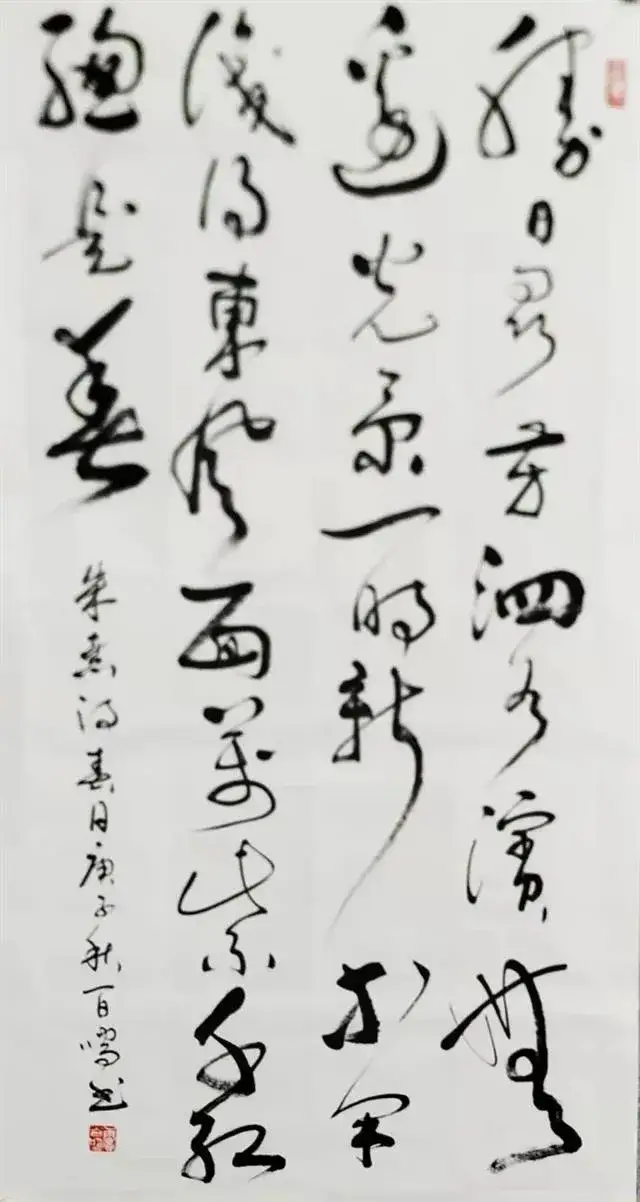 勝日尋芳泗水濱無
邊光景一時新等閒
識得東風面萬紫千紅
總是春
朱熹詩春日庚子秋百書